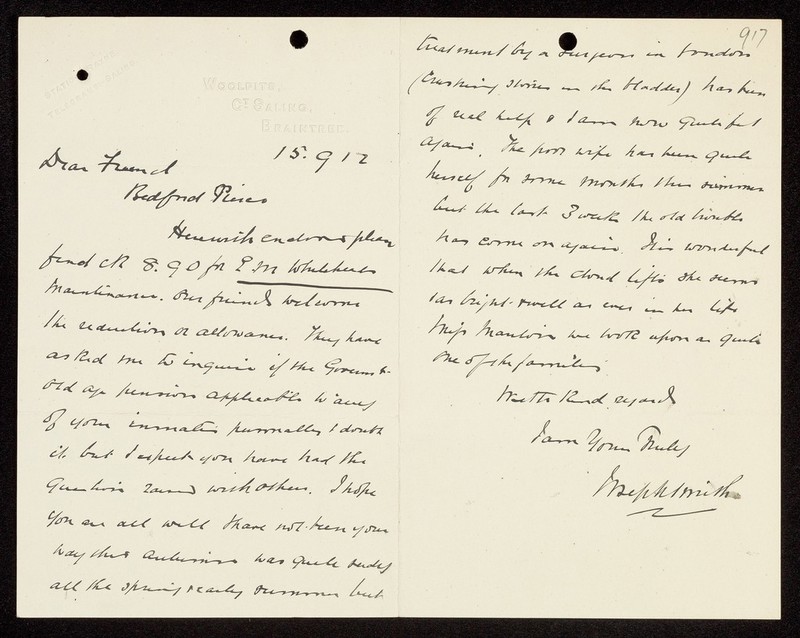 917
WOOLPITS,
GT SALING,
BRAINTREE.
15. 9 12
Dear Friend
Bedford Pierce
Herewith endorsed please
find ck 8.9.0 for E M Whiteheads
Maintenance. Our friends welcome
the reduction or allowance. They have
asked me to inquire if the Governmt
old age pension applicable to any
of your inmates personally I doubt
it but I expect you have had the
question raised with others. I hope
you are all well & have not been your
way this autumn was quite seedy
all the spring & early summer but
treatment by a surgeon in London
(crushing stones in the bladder) has been
of real help & I am now quite fit
again. The poor wife has been quite
herself for some months this summer
but the last 3 weeks the old trouble
has come on again. It is wonderful
that when the cloud lifts she seems
as bright & well as ever in her life
Miss we look upon as quite
one of the families
With kind regards
I am Yours Truly
Joseph Smith